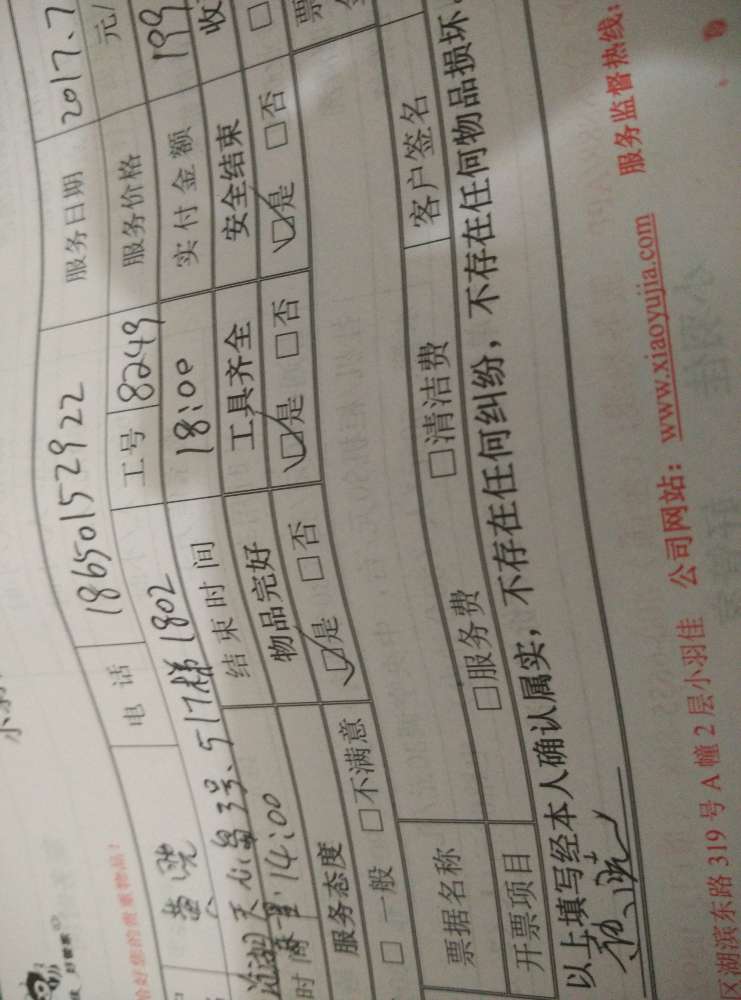 好管家
给好您的贵重物品！
黄 电 话 18650152922 服务日期 2017.7
517梯1802 工号 8249 服务价格 元/
14:00 结束时间 18:00 实付金额 199
服务态度 物品完好 工具齐全 安全结束 收
□一般 □不满意 ☑是 □否 ☑是 □否 ☑是 □否 □
票
票据名称 □服务费 □清洁费 客户签名
开票项目
以上填写经本人确认属实，不存在任何纠纷，不存在任何物品损坏.
区湖滨东路 319 号 A 幢 2 层小羽佳 公司网站：www.xiaoyujia.com 服务监督热线: